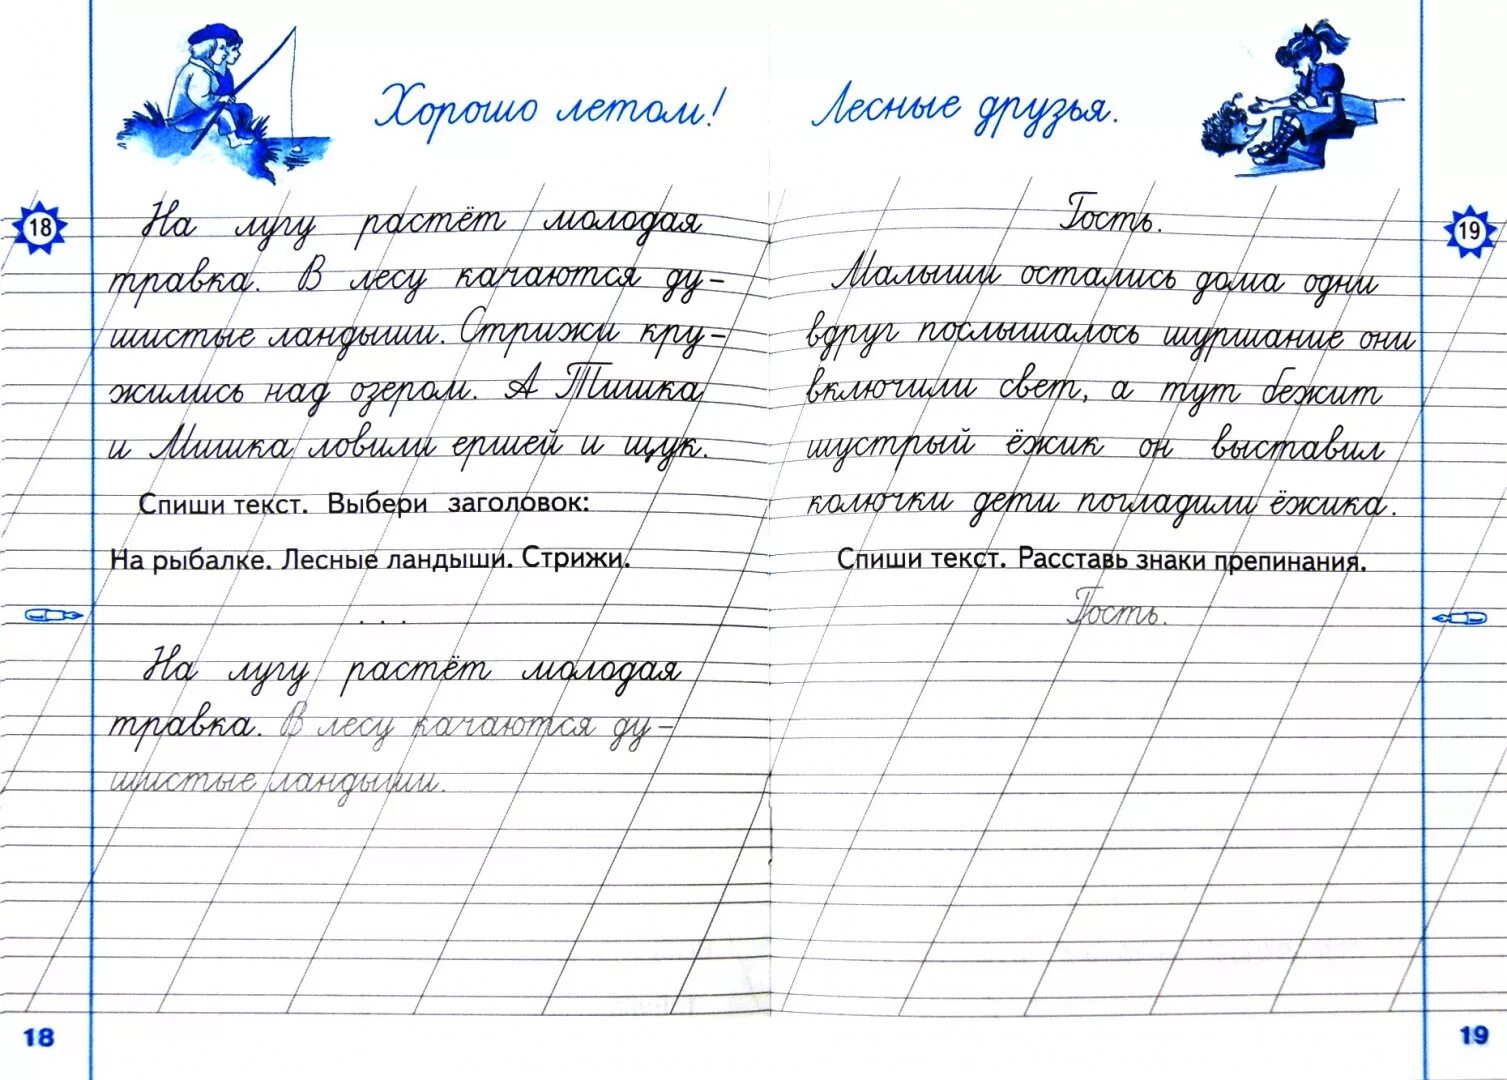 Хорошо летом!
18
На лугу растёт молодая
травка. В лесу качаются ду-
шистые ландыши. Стрижи кру-
жились над озером. А Тишка
и Мишка ловили ершей и щук.
Спиши текст. Выбери заголовок:
На рыбалке. Лесные ландыши. Стрижи.
. . .
На лугу растёт молодая
травка. В лесу качаются ду-
шистые ландыши.
18
Лесные друзья.
19
Гость.
Малыши остались дома одни
вдруг послышалось шуршание они
включили свет, а тут бежит
шустрый ёжик он выставил
колючки дети погладили ёжика.
Спиши текст. Расставь знаки препинания.
Гость.
19